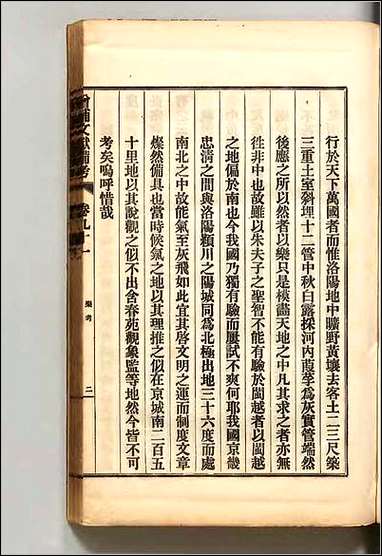 行於天下萬國者而惟洛陽地中曠野黃壤去客土二三尺築
三重土室斜埋十二管中秋白露採河內葭莩爲灰實管端然
後應之所以然者以樂只是模蓋天地之中凡其求之者亦無
徃非中也故雖以朱夫子之聖智不能有驗於閩越者以閩越
之地偏於南也今我國乃獨有驗而屢試不爽何耶我國京畿
忠淸之間與洛陽潁川之陽城同爲北極出地三十六度而處
南北之中故能氣至灰飛如此宜其啓文明之運而制度文章
燦然備具也當時候氣之地以其理推之似在京城南二百五
十里地以其說觀之似不出含春苑觀象監等地然今皆不可
考矣嗚呼惜哉
增補文獻備考
卷九十一
樂考
二